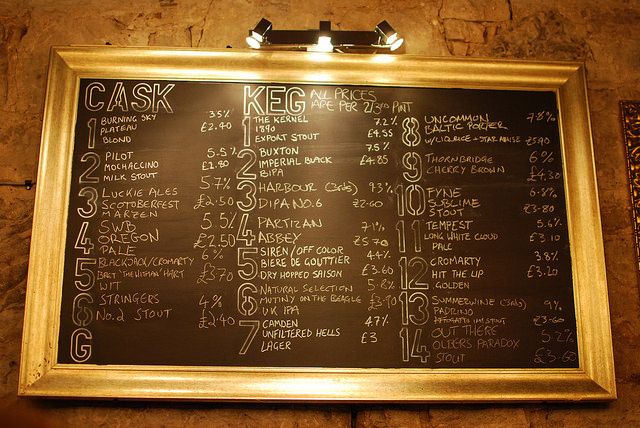 CASK
1 BURNING SKY 3.5%
PLATEAU £2.40
BLOND
2 PILOT 5.5%
MOCHACCINO £2.80
MILK STOUT
3 LUCKIE ALES 5.7%
SCOTOBERFEST £2.50
MARZEN
4 SWB 5.5%
OREGON £2.50
PALE
5 BLACKJACK/CROMARTY 6%
BRET "THE HITMAN" HART £3.70
WIT
6 STRINGERS 4%
No.2 STOUT £2.40
G
KEG ALL PRICES
ARE PER 2/3rd PINT
1 THE KERNEL 7.2%
1840 £4.55
EXPORT STOUT
2 BUXTON 7.5%
IMPERIAL BLACK £4.85
BIPA
3 HARBOUR
DIPA No.6
4 PARTIZAN
ABBEY
5 SIREN/OFF COLOR 4.4%
BIERE DE GOUTTIER £3.60
DRY HOPPED SAISON
6 NATURAL SELECTION 5.8%
MUTINY ON THE BEAGLE
UK IPA
7 CAMDEN 4.7%
UNFILTERED HELLS £3
LAGER
8 UNCOMMON
BALTIC PORTER
W/LIQUORICE + STAR ANISE
9 THORNBRIDGE 6%
CHERRY BROWN £4.30
10 FYNE
SUBLIME £3.80
STOUT
11 TEMPEST 5.6%
LONG WHITE CLOUD £3.10
PALE
12 CROMARTY 3.8%
HIT THE LIP £3.20
GOLDEN
13 SUMMERWINE 9%
PADRINO
AFFOGATO STOUT
14 OUT THERE 5.2%
OLBERS PARADOX £3.60
STOUT